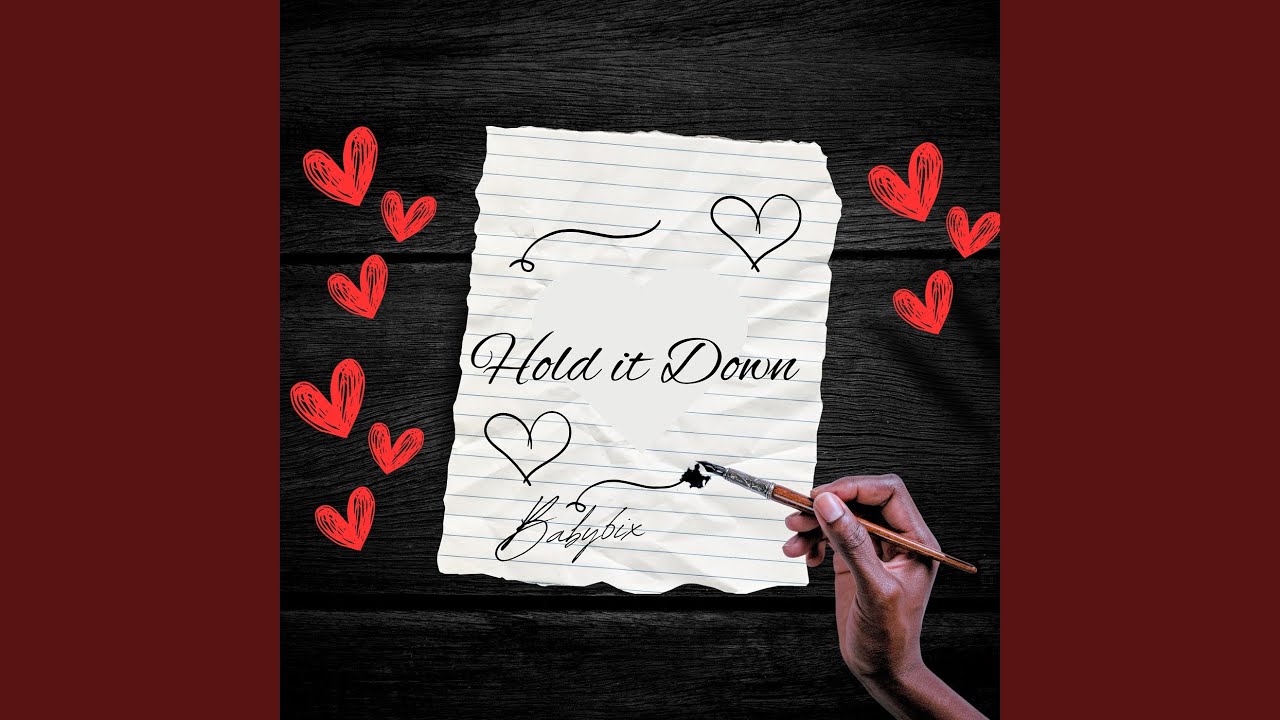 Hold it Down
Babybix